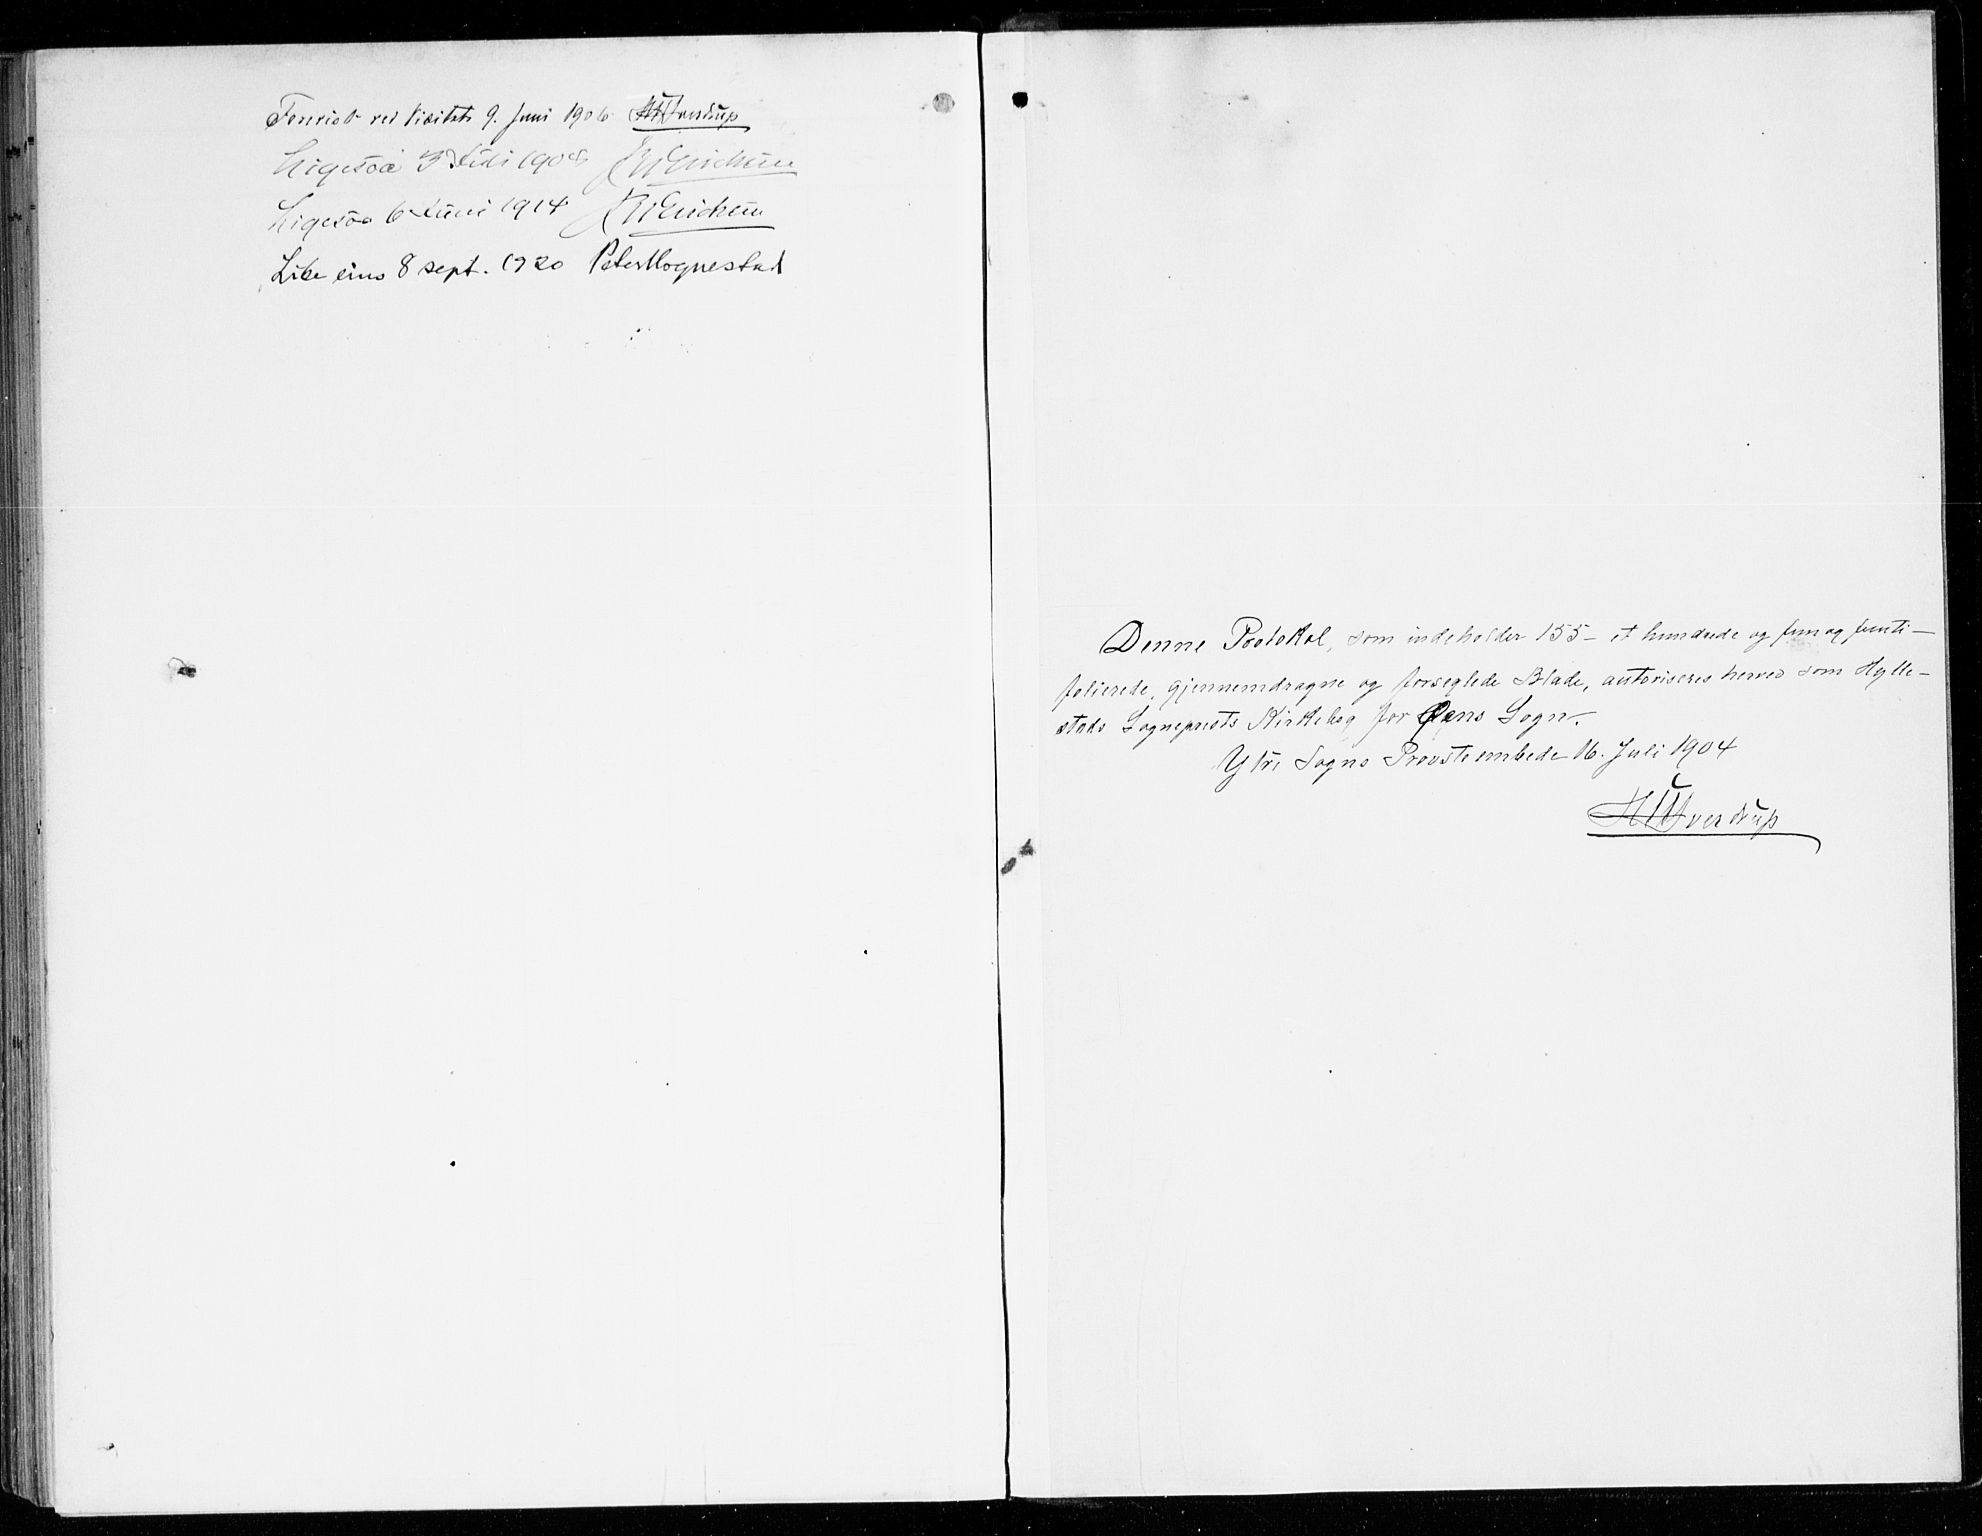 Forevist ved Visitats 9. Juni 1906 HUSverdrup
Ligesaa 3 Juli 1908 J W Erichsen
Ligesaa 6 Juni 1914 J W Erichsen
Like eins 8 sept. 1920 Peter Hognestad
Denne Protokol, som indeholder 155 - et hundrede og fem og femti -
folierede, gjennemdragne og forseglede Blade, autoriseres herved som Hylle-
stads Sogneprests Kirkebog for Øens Sogn.
Ytre Sogns Provsteembede 16. Juli 1904
HUSverdrup